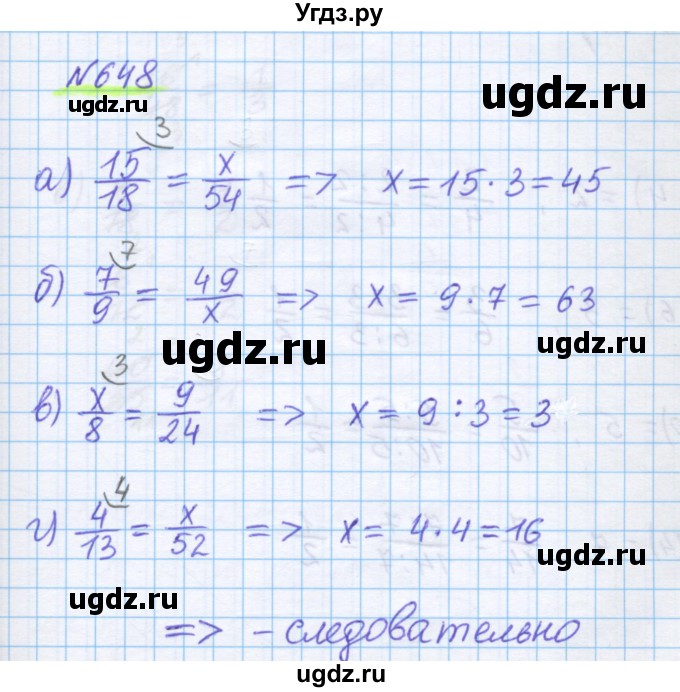 Угдз.ру
№648
ugdz.ru
ugdz.ru
а) 15/18 = x/54 => x = 15 · 3 = 45
3
ugdz.ru
б) 7/9 = 49/x => x = 9 · 7 = 63
7
ugdz.ru
ugdz.ru
в) x/8 = 9/24 => x = 9 : 3 = 3
3
г) 4/13 = x/52 => x = 4 · 4 = 16
4
ugdz.ru
ugdz.ru
=> - следовательно
ugdz.ru